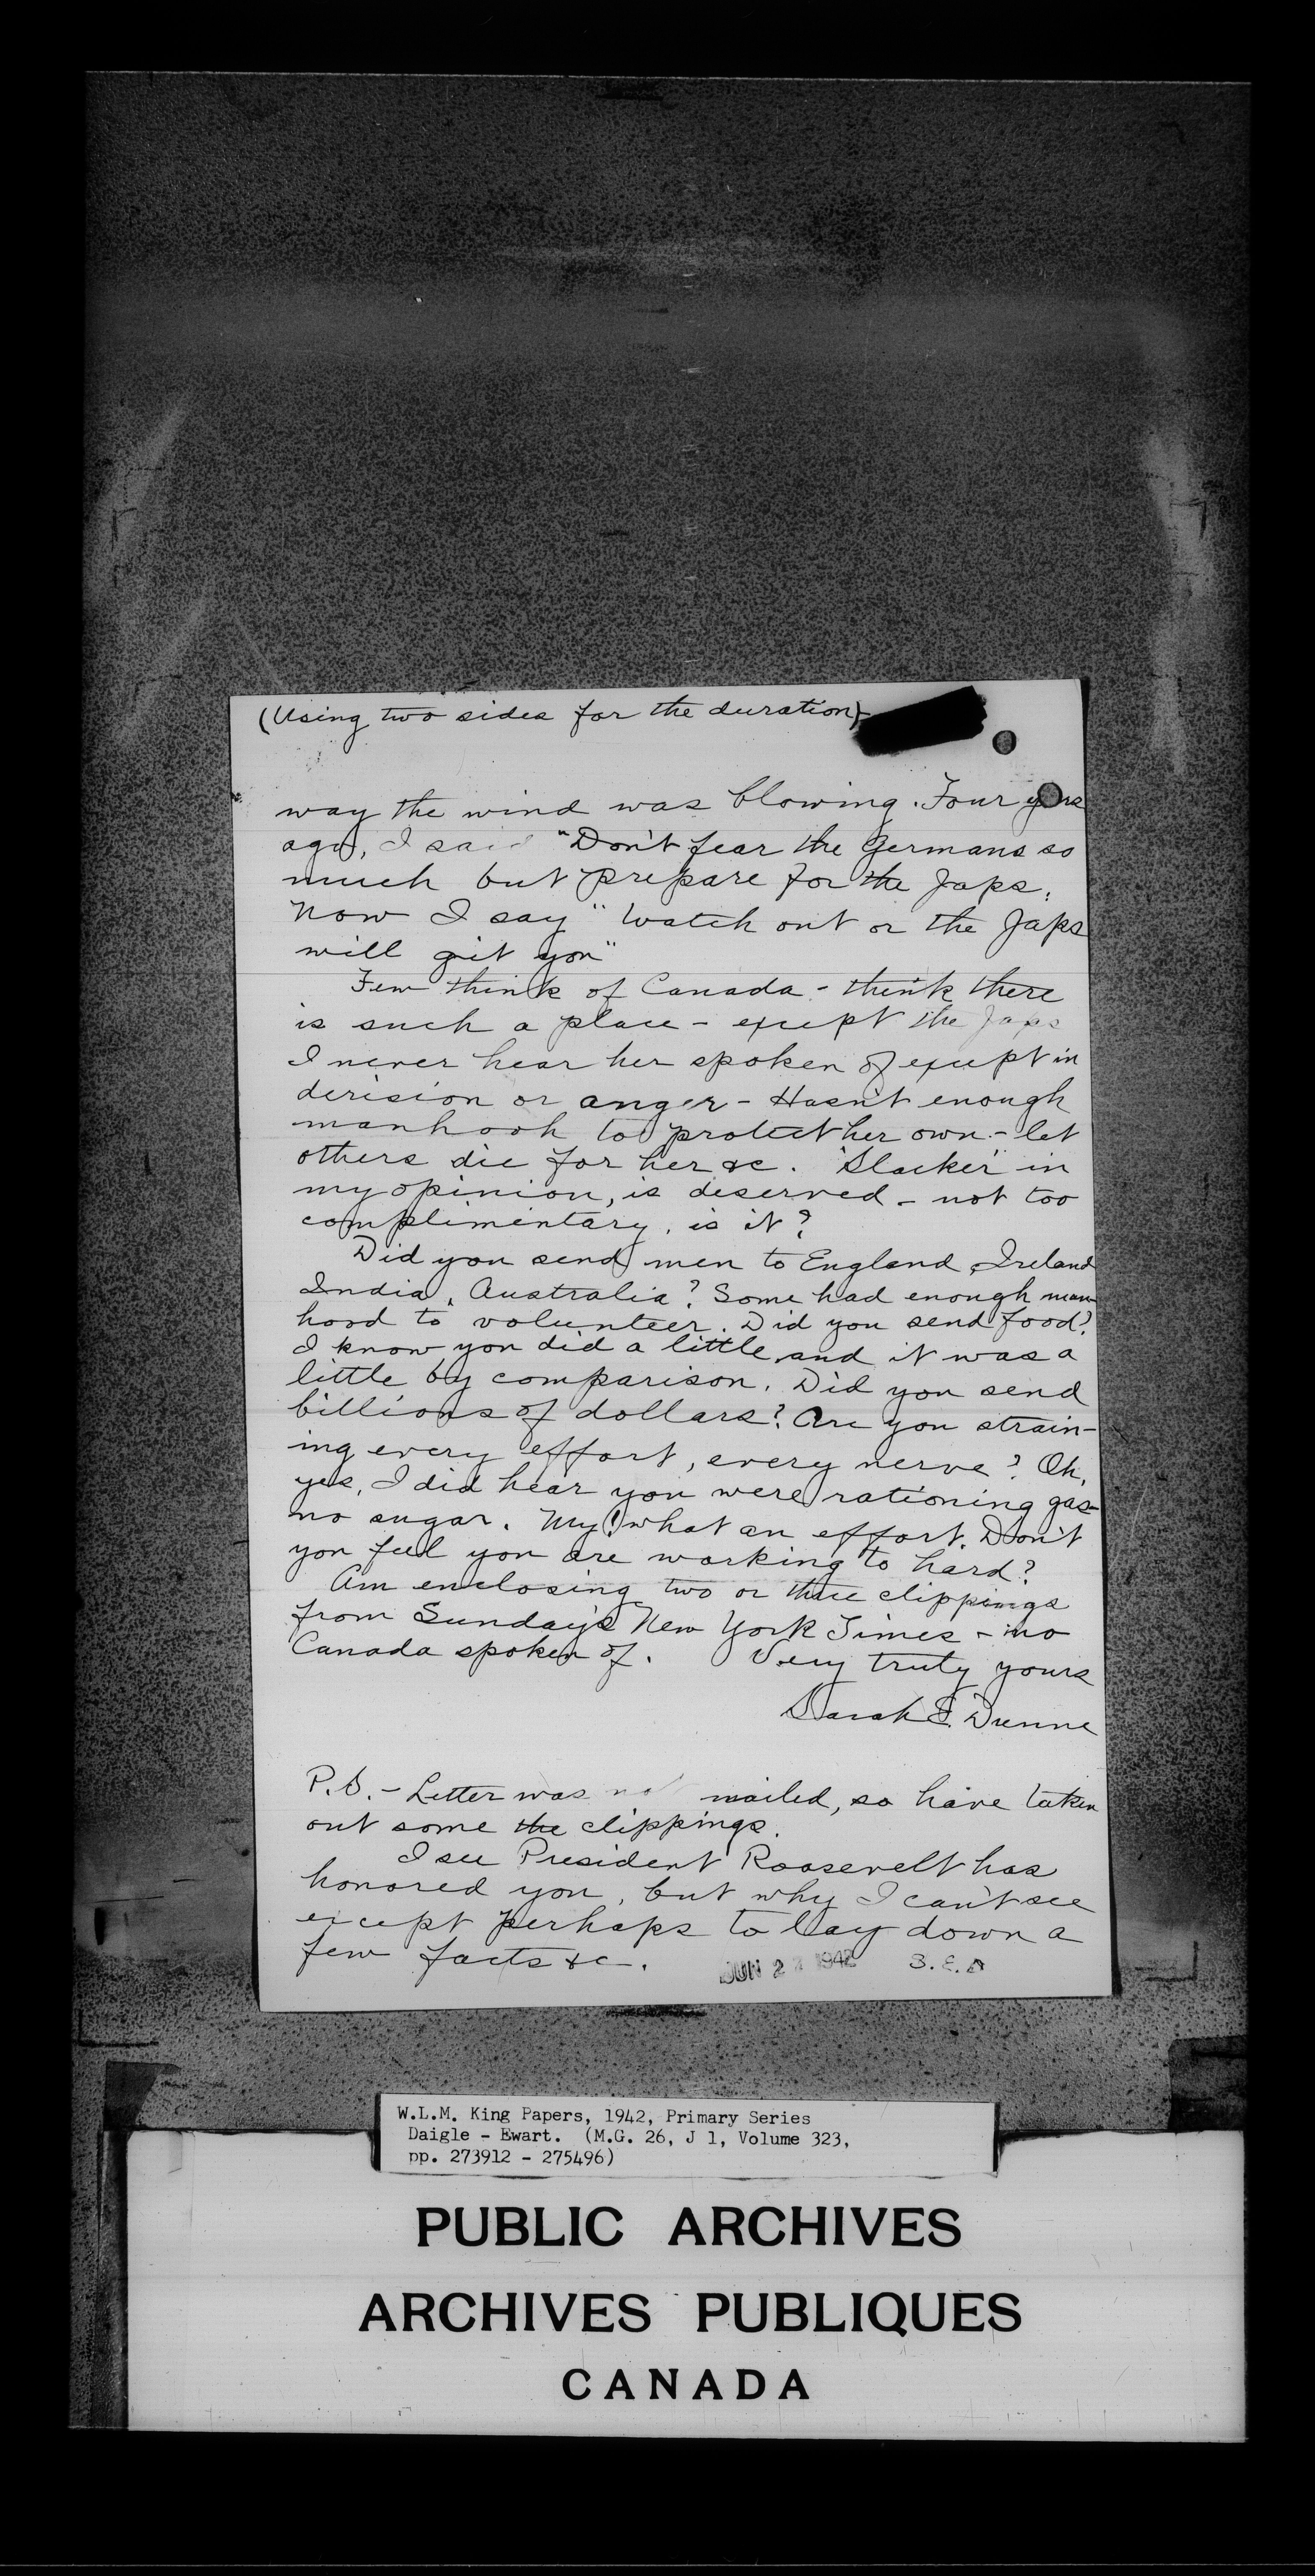 (Using two sides for the duration)
way the wind was blowing. Four years
ago, I said "Don't fear the Germans so
much but prepare for the Japs.
Now I say "Watch out or the Japs
will git you"
Few think of Canada - think there
is such a place - except the Japs
I never hear her spoken of except in
derision or anger - Hasn't enough
manhook to protect her own - let
others die for her &c. "Slacker" in
my opinion, is deserved - not too
complimentary, is it?
Did you send men to England, Ireland
India, Australia? Some had enough man
hood to volunteer. Did you send food?
I know you did a little, and it was a
little by comparison. Did you send
billions of dollars? Are you strain-
ing every effort, every nerve? Oh,
yes, I did hear you were rationing gas-
no sugar. My! what an effort. Don't
you feel you are working to hard?
Am enclosing two or three clippings
from Sunday's New York Times - no
Canada spoken of. Very truly yours
Sarah E. Dunne
P.S. - Letter was not mailed, so have taken
out some the clippings.
I see President Roosevelt has
honored you, but why I can't see
except perhaps to lay down a
few facts &c.
JUN 2 1942 S.E.D
W.L.M. King Papers, 1942, Primary Series
Daigle - Ewart. (M.G. 26, J 1, Volume 323,
pp. 273912 - 275496)
PUBLIC ARCHIVES
ARCHIVES PUBLIQUES
CANADA